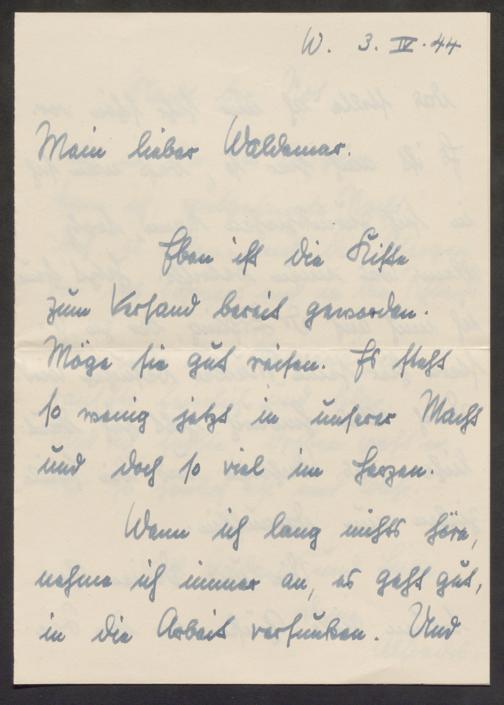 W. 3. IV. 44
Mein lieber Waldemar.
Eben ist die Kiste
zum Versand bereit geworden.
Möge sie gut reisen. Es steht
so wenig jetzt in unserer Macht
und doch so viel im Herzen.
Wenn ich lang nichts höre,
nehme ich immer an, es geht gut,
in die Arbeit versunken. Und